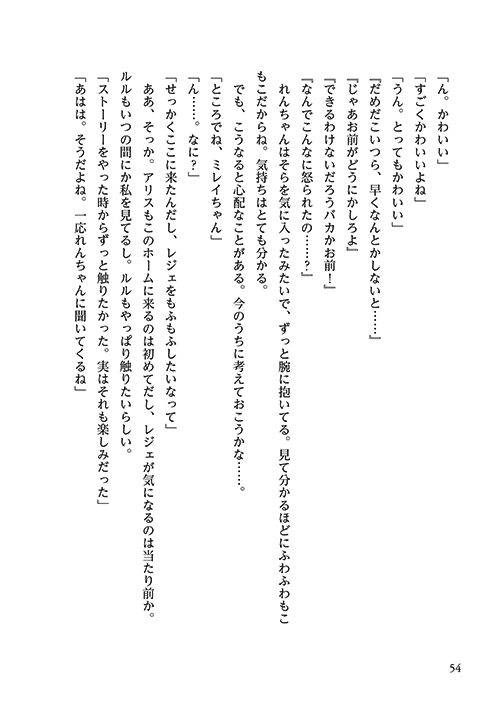 「ん。かわいい」
「すごくかわいいよね」
「うん。とってもかわいい」
『だめだこいつら、早くなんとかしないと……』
『じゃあお前がどうにかしろよ』
『できるわけないだろうバカかお前！』
『なんでこんなに怒られたの……？』
れんちゃんはそらを気に入ったみたいで、ずっと腕に抱いてる。見て分かるほどにふわふわもこ
もこだからね。気持ちはとても分かる。
でも、こうなると心配なことがある。今のうちに考えておこうかな……。
「ところでね、ミレイちゃん」
「ん……。なに？」
「せっかくここに来たんだし、レジェをもふもふしたいなって」
ああ、そっか。アリスもこのホームに来るのは初めてだし、レジェが気になるのは当たり前か。
ルルもいつの間にか私を見てるし。ルルもやっぱり触りたいらしい。
「ストーリーをやった時からずっと触りたかった。実はそれも楽しみだった」
「あはは。そうだよね。一応れんちゃんに聞いてくるね」
54